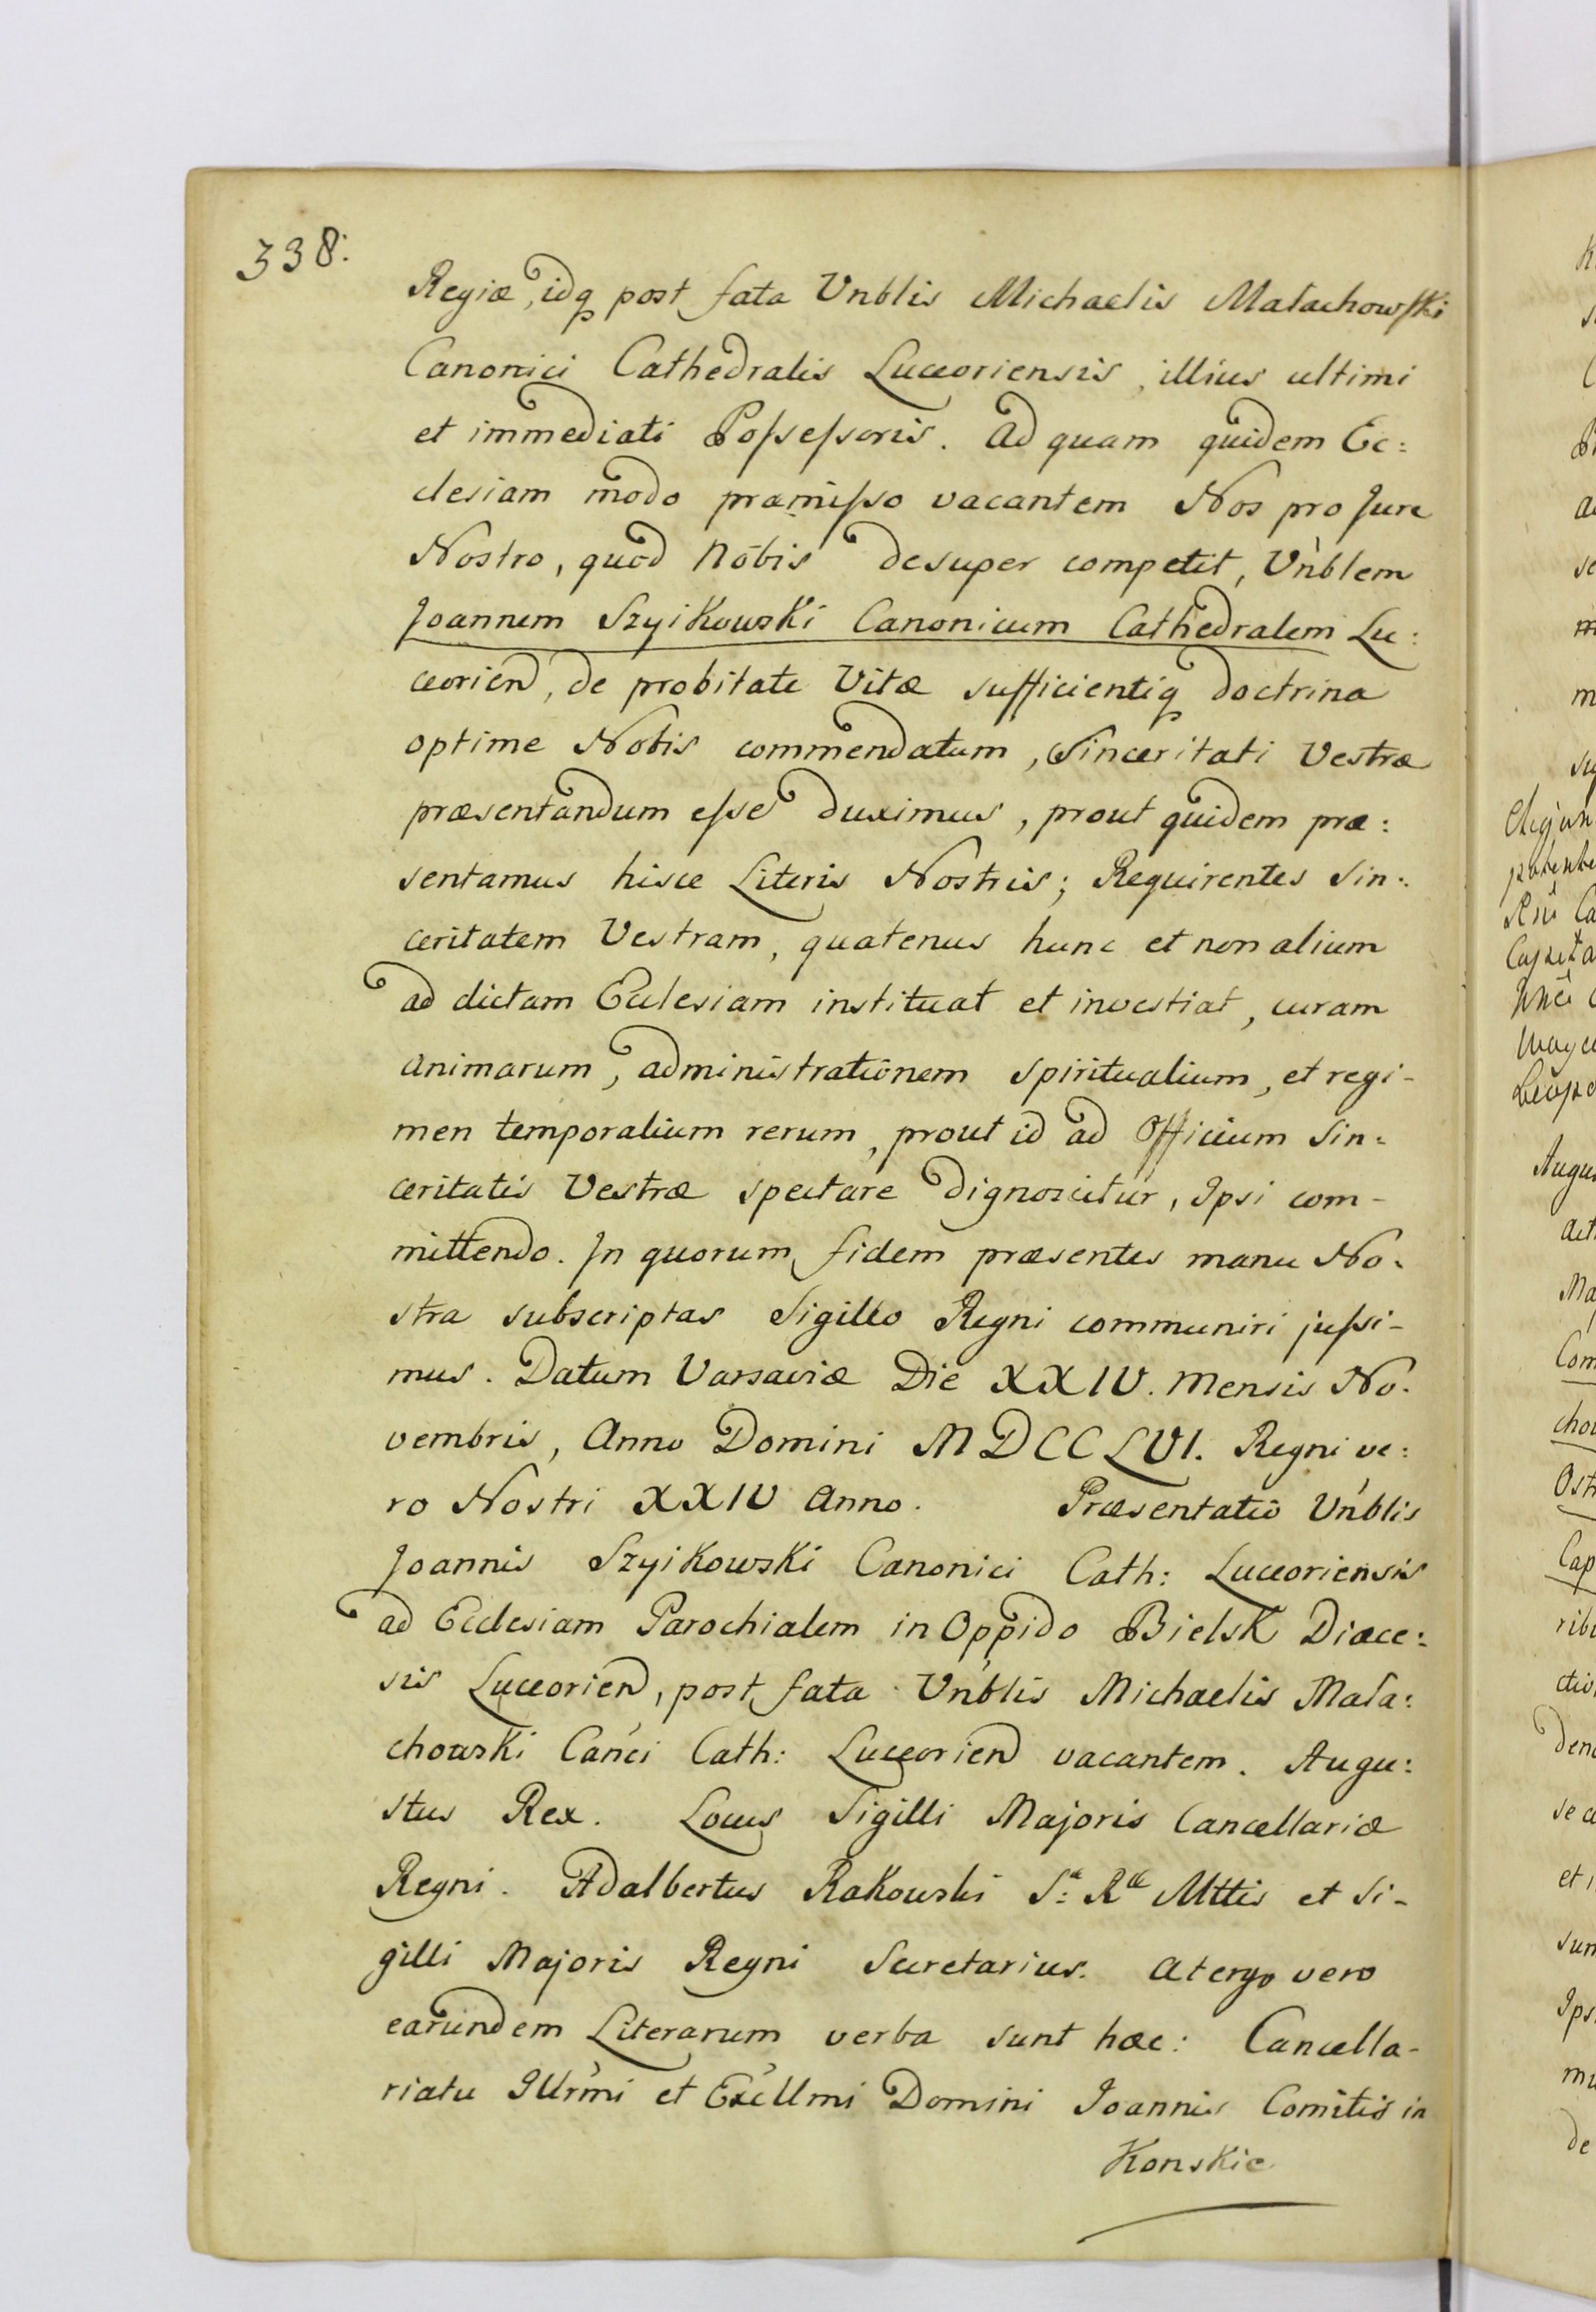 338:
Regiæ, idq post fata Vnblis Michaelis Małachowski
Canonici Cathedralis Luceoriensis, illius ultimi
et immediati Possessoris. Ad quam quidem Ec:
clesiam modo præmisso vacantem Nos pro Jure
Nostro, quod Nobis desuper competit, Vnblem
Joannem Szyikowski Canonicum Cathedralem Lu:
ceorien, de probitate Vitæ sufficientiq doctrina
optime Nobis commendatum, Sinceritati Vestræ
præsentandum esse duximus, prout quidem præ:
sentamus hisce Literis Nostris; Requirentes Sin:
ceritatem Vestram, quatenus hunc et non alium
ad dictam Ecclesiam instituat et investiat, curam
animarum, administrationem spiritualium, et regi-
men temporalium rerum, prout id ad Officium Sin:
ceritatis Vestræ spectare dignoscitur, Ipsi com-
mittendo. In quorum fidem præsentes manu No:
stra subscriptas Sigillo Regni communiri jussi-
mus. Datum Varsaviæ Die XXIV. Mensis No:
vembris, Anno Domini MDCCLVI. Regni ve:
ro Nostri XXIV Anno. Præsentatio Vnblis
Joannis Szyikowski Canonici Cath: Luceoriensis
ad Ecclesiam Parochialem in Oppido Bielsk Diæce:
sis Luceorien, post fata Vnblis Michaelis Mała:
chowski Canci Cath: Luceorien vacantem. Augu:
stus Rex. Locus Sigilli Majoris Cancellariæ
Regni. Adalbertus Rakowski S: Ræ Mttis et Si-
gilli Majoris Regni Secretarius. A tergo vero
earundem Literarum verba sunt hæc: Cancella-
riatu Illrmi et Excllmi Domini Joannis Comitis in
Konskie